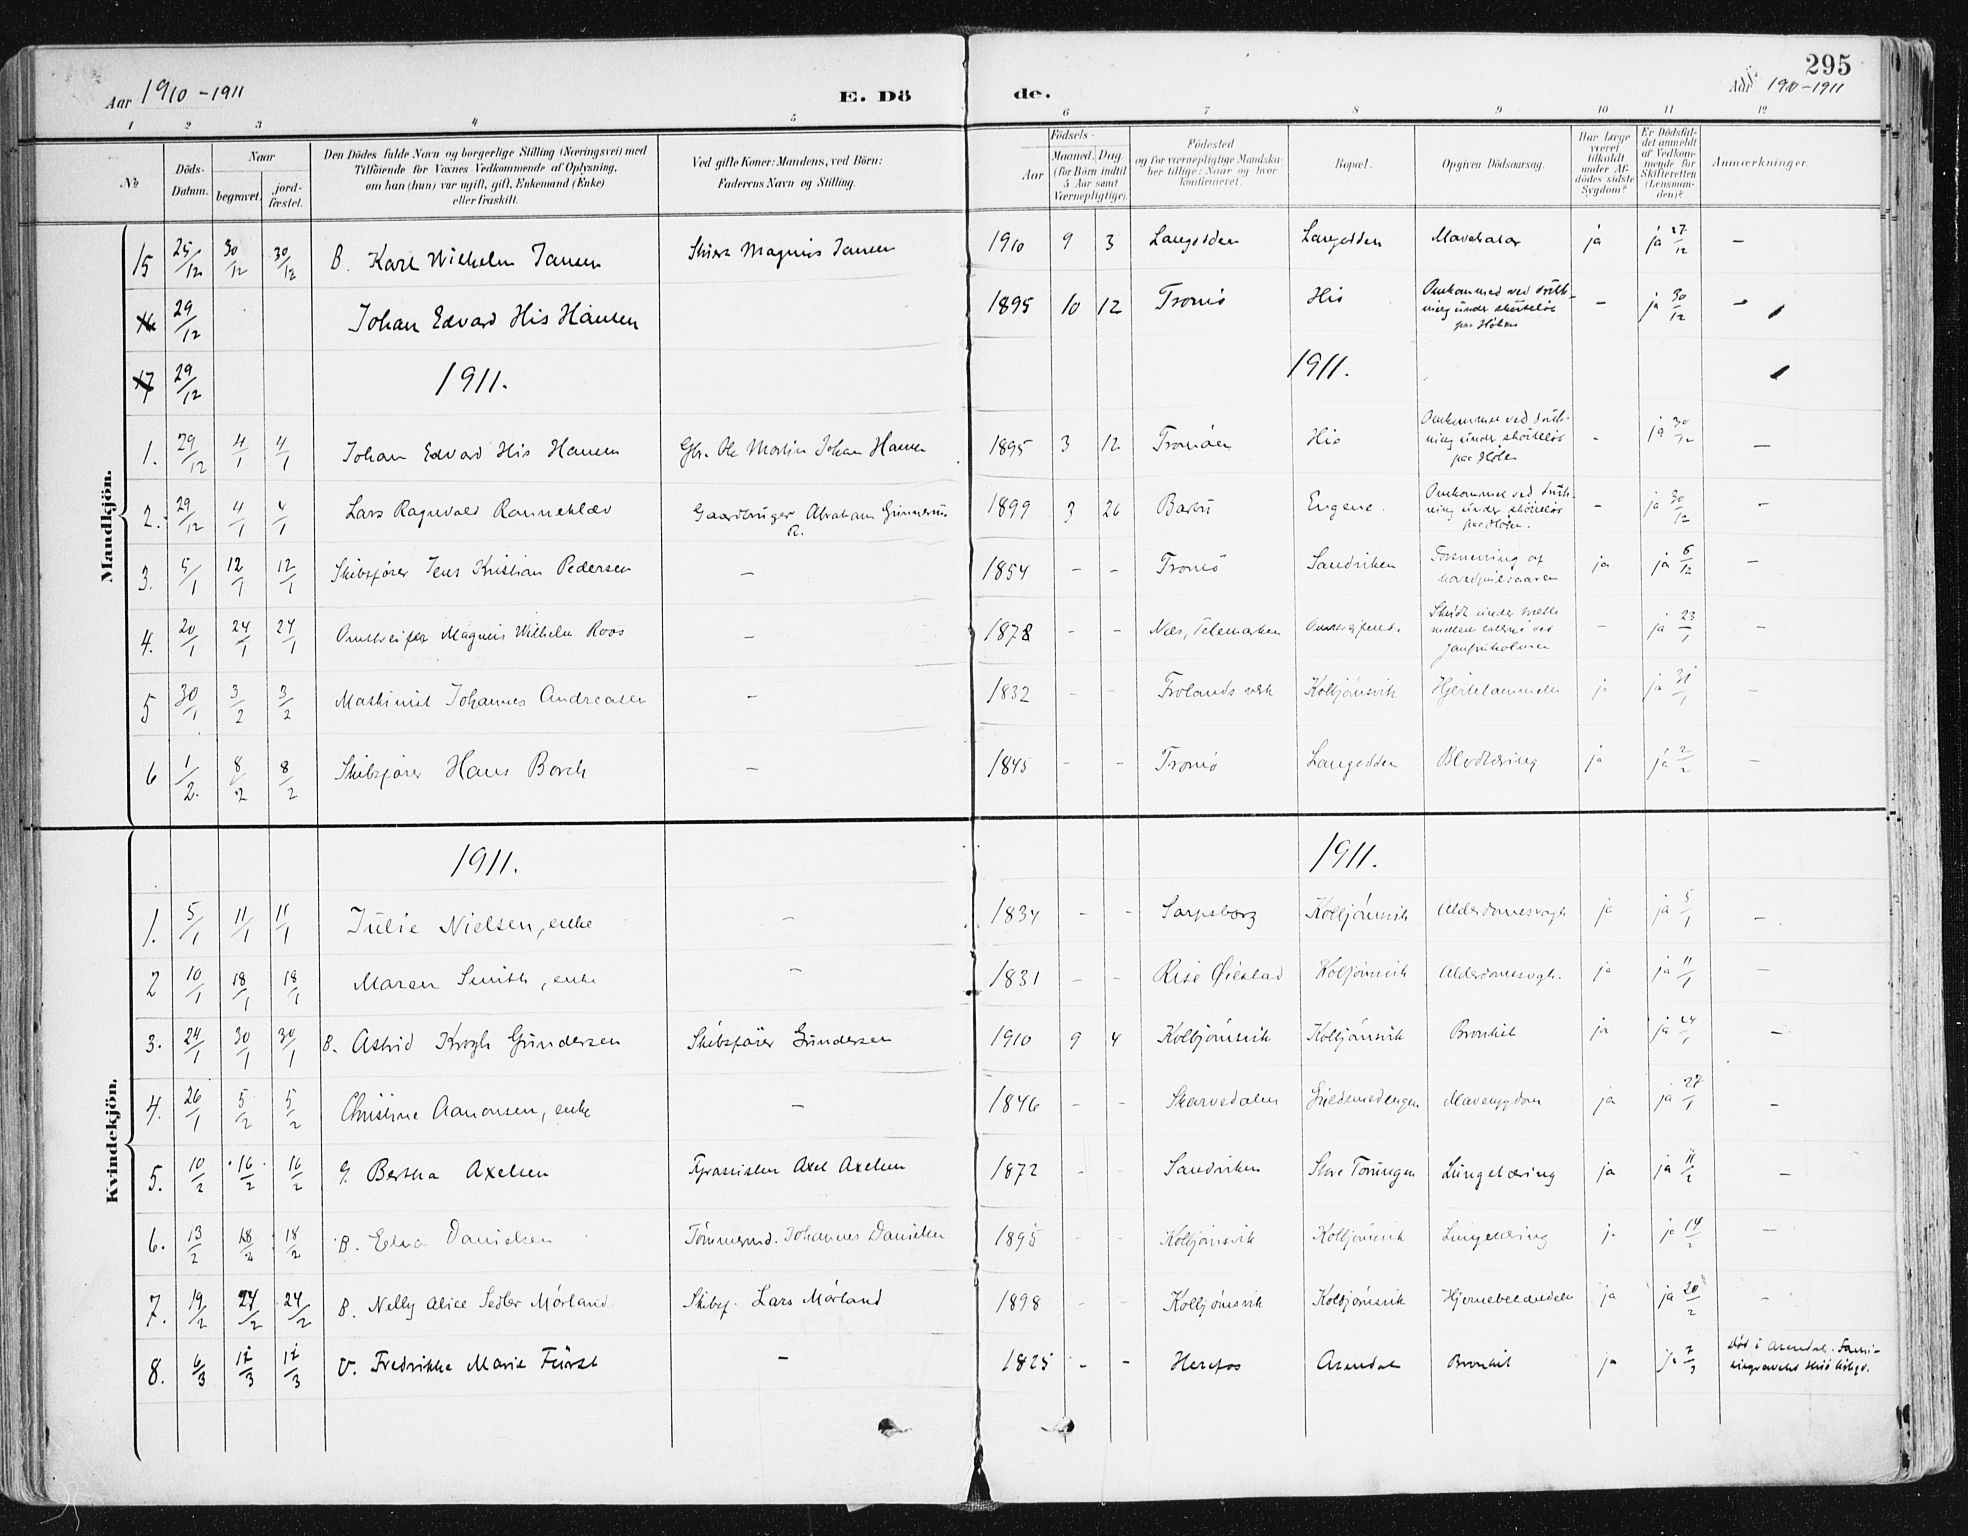 295
Aar 1910-1911
E. Dö
de.
Aar 1910-1911
1 2 3 4 5 6 7 8 9 10 11 12
No
Döds-Datum.
Naar
begravet.
jord-fæstet.
Den Dödes fulde Navn og borgerlige Stilling (Næringsvei) med
Tilföiende for Voxnes Vedkommende af Oplysning,
om han (hun) var ugift, gift, Enkemand (Enke)
eller fraskilt.
Ved gifte Koner: Mandens, ved Börn:
Faderens Navn og Stilling.
Födsels-
Aar
Maaned. Dag
(for Börn indtil
5 Aar samt
Værnepligtige).
Födested
og for værnepligtige Mandska-
ber tillige: Naar og hvor
konfirmeret.
Bopæl.
Opgiven Dödsaarsag.
Har Læge
været
tilkaldt
under Af-
dödes sidste
Sygdom?
Er Dödsfal-
det anmeldt
af Vedkom-
mende for
Skifteretten
(Lensman-
den)?
Anmærkninger.
Mandkjön.
15 25/12 30/12 30/12 B. Karl Wilhelm Jansen Magnus Jansen 1910 9 3 Langodden Langodden Mavekatar ja ja 27/12 –
16 29/12 Johan Edvard His Hansen 1895 10 12 Tromö His Omkommed ved drukning under sköiteløb paa Hölen – ja 30/12 –
17 29/12 1911. 1911.
1. 29/12 4/1 4/1 Johan Edvard His Hansen Gbr. Ole Martin Johan Hansen 1895 3 12 Tromöen His Omkommet ved drukning under sköiteløb paa Hölen – ja 30/12 –
2. 29/12 4/1 4/1 Lars Ragnvald Ranneklev Gaardbruger Abraham Gunnerius R. 1899 3 26 Barbu Engene. Omkommet ved drukning under sköiteløb paa Hölen. – ja 30/12 –
3. 5/1 12/1 12/1 Skibsförer Jens Kristian Pedersen – 1854 – – Tromö Sandviken Forsnevring af ja ja 6/12 –
4. 20/1 24/1 24/1 Omstreifer Magnus Wilhelm Roos – 1878 – – Næs, Telemarken Omstreifende. – ja 23/1 –
5 30/1 3/2 3/2 Maskinist Johannes Andreasen – 1832 – – Frolands verk Kolbjörnsvik Hjertelammelse ja ja 31/1 –
6 1/2. 8/2 8/2 Skibsförer Hans Borch – 1845 – – Tromö Langodden Blodtæring ja ja 2/2 –
Kvindekjön.
1911. 1911.
1. 5/1 11/1 11/1 Julie Nielsen, enke – 1834 – – Sarpsborg Kolbjörnsvik Alderdomssvagh ja ja 5/1 –
2 10/1 18/1 18/1 Maren Smith, enke – 1831 – – Rise Øiestad Kolbjörnsvik Alderdomssvagh. ja ja 11/1 –
3. 24/1 30/1 30/1 B. Astrid Krogh Gundersen Skibsförer Gundersen 1910 9 4 Kolbjörnsvik Kolbjörnsvik Bronkit ja ja 24/1 –
4. 26/1 5/2 5/2 Christine Aanonsen, enke – 1846 – – Skarvedalen Guldsmedengen Mavesygdom ja ja 27/1 –
5. 10/2 16/2 16/2 g. Bertha Axelsen Fyrassistent Axel Axelsen 1872 – – Sandviken Store Torungen Lungetæring ja ja 11/2 –
6. 13/2 18/2 18/2 B. Edva Danielsen Tömmermd. Johannes Danielsen 1895 – – Kolbjörnsvik Kolbjörnsvik Lungetæring ja ja 14/2 –
7. 19/2 24/2 24/2 B. Nelly Alice Sedler Mörland Skibsf. Lars Mörland 1898 – – Kolbjörnsvik Kolbjörnsvik Hjernebetændelse ja ja 20/2 –
8. 6/3 12/3 12/3 U. Fredrikke Marie Fürst – 1825 – – Herefos Arendal Bronkit ja ja 7/3 död i Arendal.